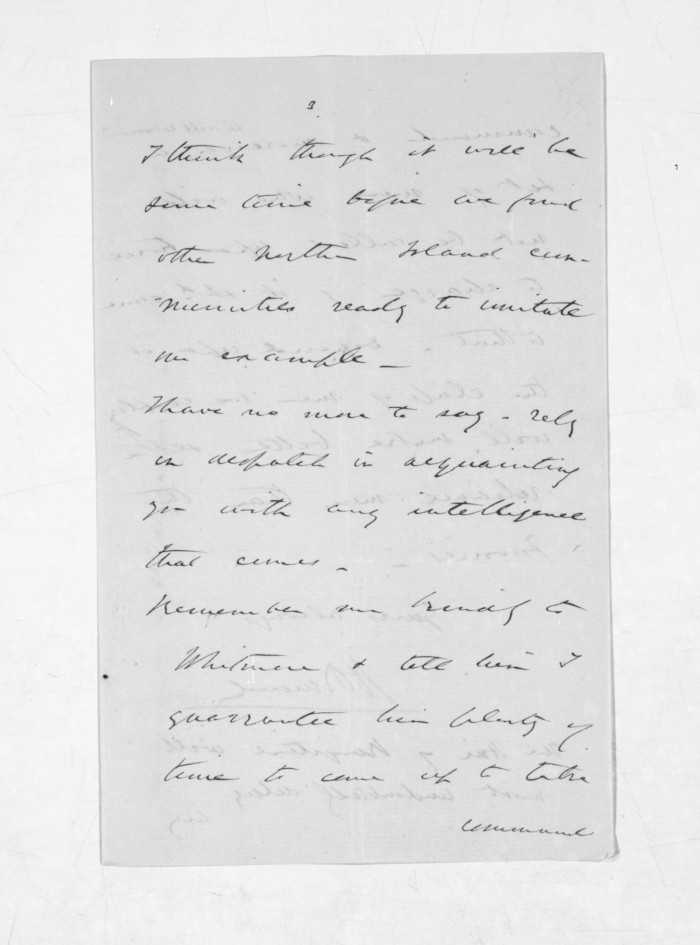 3
I think though it will be
some time before we find
other Northern Island com-
munities ready to imitate
our example _
I have no more to say - rely
on despatch in acquainting
you with any intelligence
that comes _
Remember me kindly to
Whitmore & tell him I
guarrantee him plenty of
time to come up to take
command